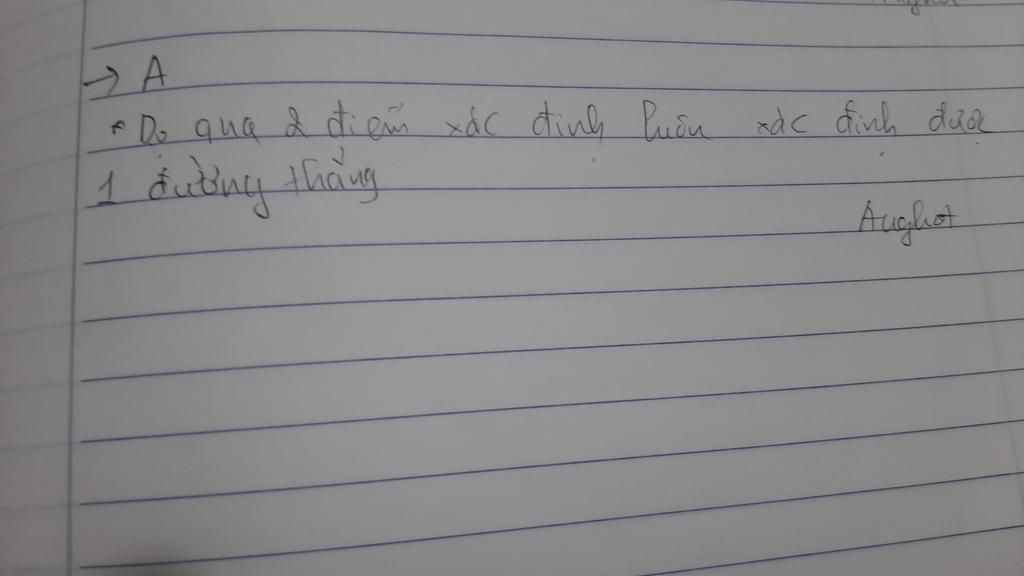 → A
* Do qua 2 điểm xác định luôn xác định được
1 đường thẳng
Aughot